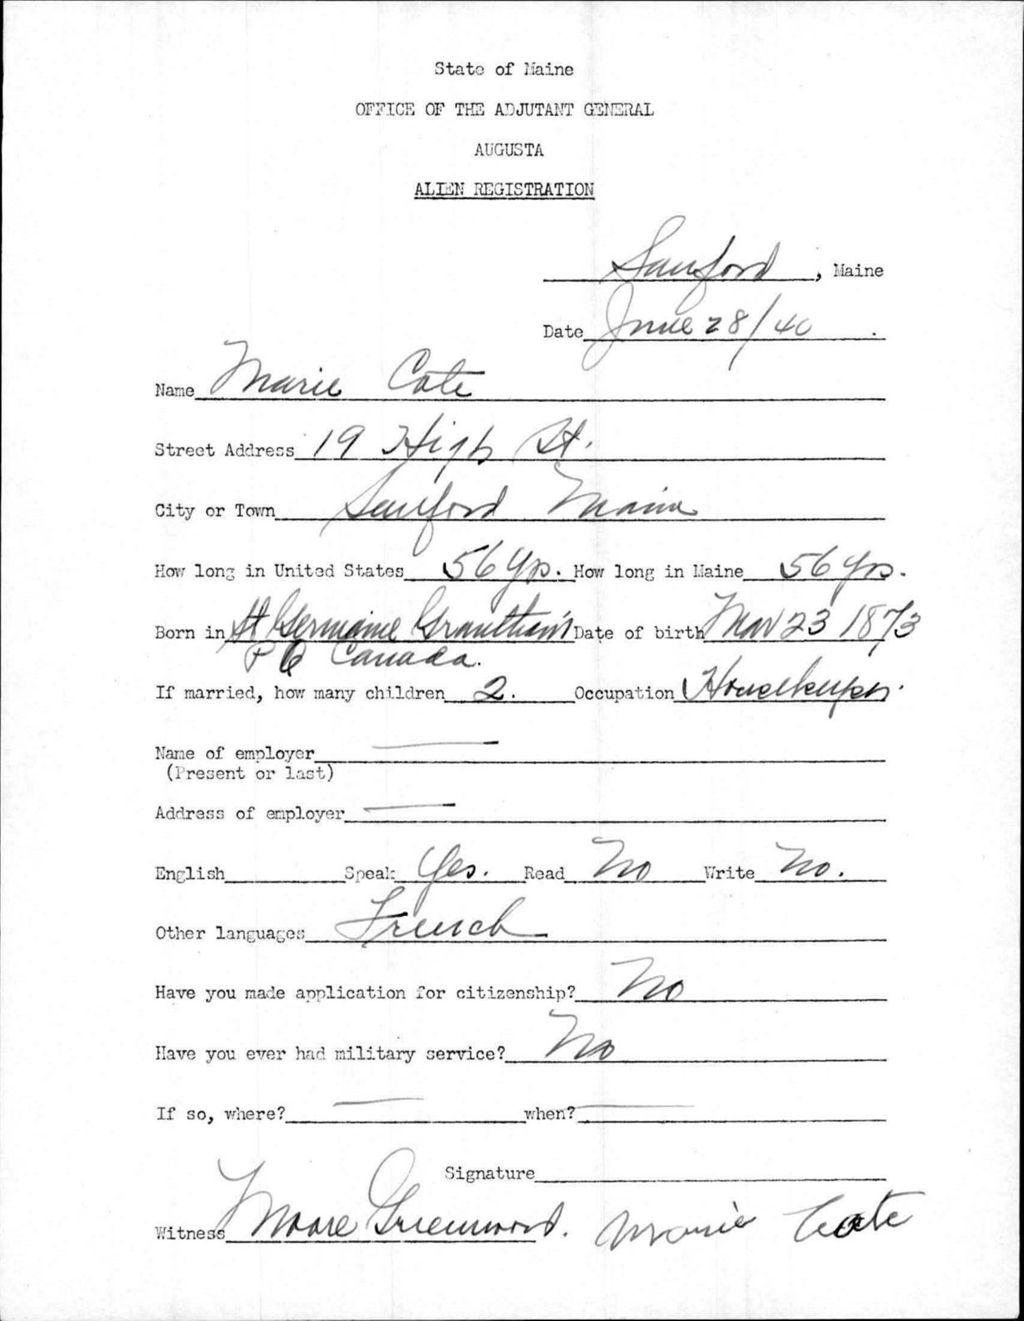 State of Maine
OFFICE OF THE ADJUTANT GENERAL
AUGUSTA
ALIEN REGISTRATION
Sanford, Maine
Date June 28/40.
Name Marie Cote
Street Address 19 High St.
City or Town Sanford Maine
How long in United States 56 Yrs. How long in Maine 56 Yrs.
Born in St Germaine Date of birth Mar 23 1873
P Q Canada.
If married, how many children 2. Occupation Housekeeper.
Name of employer
(Present or last)
Address of employer
English Speak Yes. Read No Write No.
Other languages French
Have you made application for citizenship? No
Have you ever had military service? No
If so, where? when?
Signature
Witness Moore Greenwood. Marie Cote